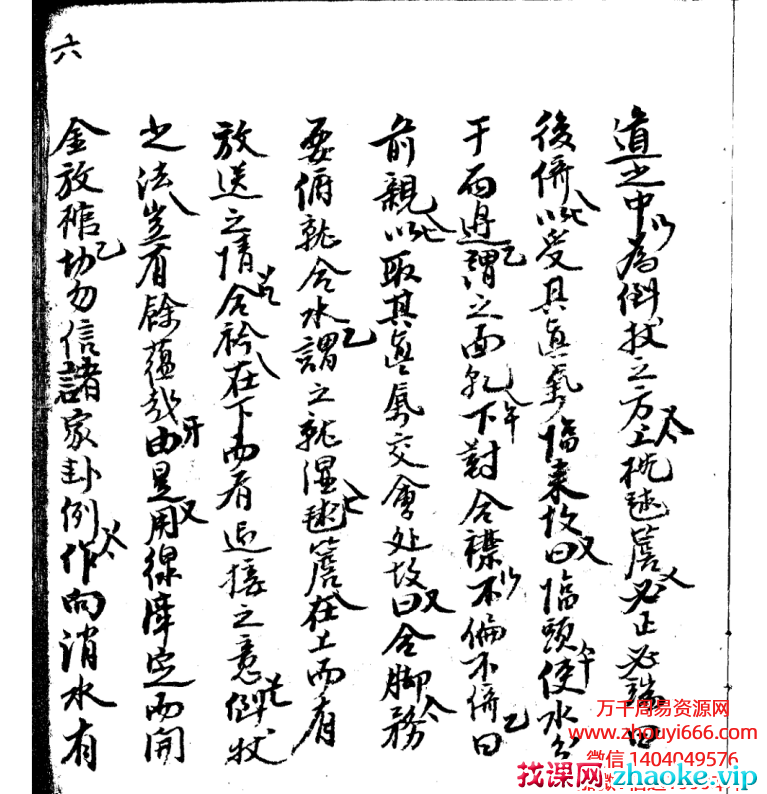 道之中為倒杖之方上枕毬簷必正必端曰
後倚以受其真氣臨來故曰臨頭使水分
于兩邊謂之面乳下對合襟不偏不倚曰
前親以取其真氣交會处故曰合脚務
要俯就合水謂之就湿毬簷在上而有
放送之情合衿在下而有迎接之意倒杖
之法豈有餘蕴哉由是用線牽定而開
金放棺切勿信諸家卦例作向消水有
六
万千周易资源网
www.zhouyi666.com
微信1404049576
找课网 zhaoke.vip